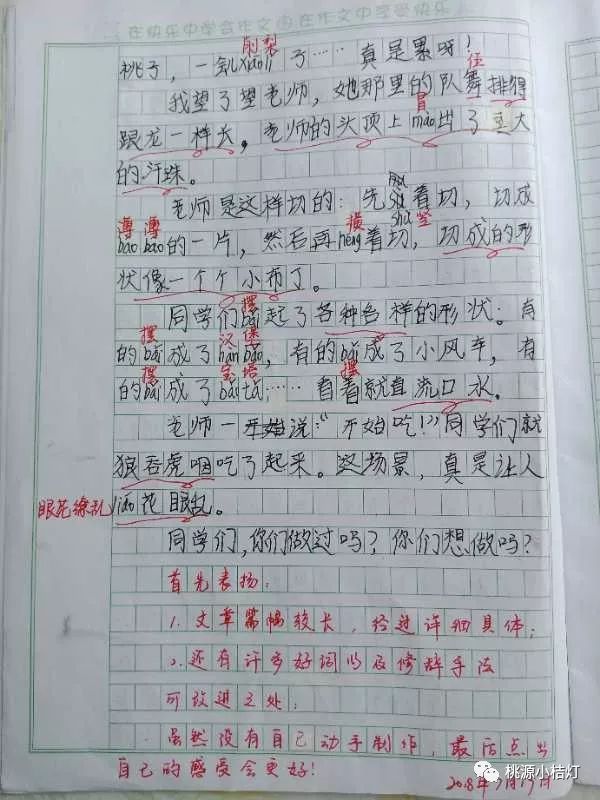 在快乐中学会作文 在作文中享受快乐
削梨
桃子，一会儿xiāo lí子……真是累呀！
我望了望老师，她那里的队舞排得
跟龙一样长，老师的头顶上mào出了豆大
冒
的汗珠。
老师是这样切的：先shù着切，切成
竖
薄 薄 横
báo báo的一片，然后再héng着切，切成的形
状像一个个小布丁。
摆
同学们bǎi起了各种各样的形状。有
摆 汉 堡
的bǎi成了hàn bǎo，有的bǎi成了小风车，有
摆 宝塔 摆
的bǎi成了bǎo tǎ……看着就直流口水。
老师一开始说：“开始吃！”同学们就
狼吞虎咽吃了起来。这场景，真是让人
眼花缭乱
liáo花眼乱。
同学们，你们做过吗？你们想做吗？
首先表扬：
1.文章篇幅较长，经过详细具体；
2.还有许多好词以及修辞手法
可改进之处：
虽然没有自己动手制作，最后点出
自己的感受会更好！
2018年7月17日
桃源小桔灯